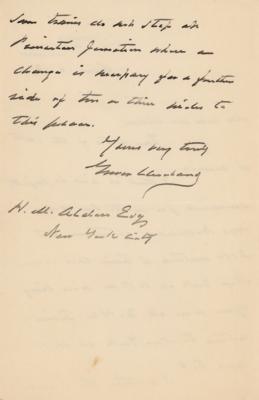 Some trains do not stop at
Princeton Junction where a
change is necessary for a further
ride of two or three miles to
this place.
Yours very truly
Grover Cleveland
H. M. Alden Esq
New York City